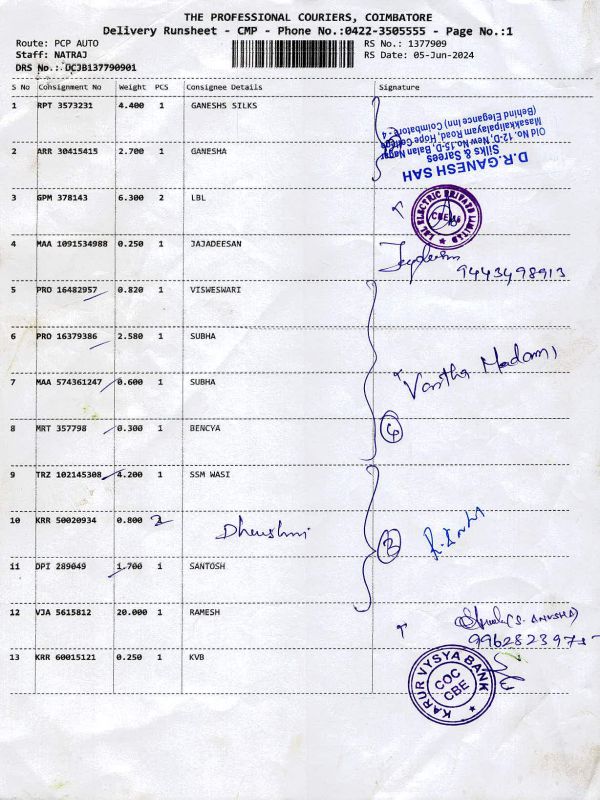 THE PROFESSIONAL COURIERS, COIMBATORE
Delivery Runsheet - CMP - Phone No.:0422-3505555 - Page No.:1
Route: PCP AUTO
Staff: NATRAJ
DRS No.: DCJB137790901
RS No.: 1377909
RS Date: 05-Jun-2024
S No Consignment No Weight PCS Consignee Details Signature
1 RPT 3573231 4.400 1 GANESHS SILKS
D.R.GANESH SAH
Silks & Sarees
Old No.12, New No.15-D, Balan Nagar
Masakkalipalayam Road, Hope College
(Behind Elegance Inn) Coimbatore - 4
2 ARR 30415415 2.700 1 GANESHA
3 GPM 378143 6.300 2 LBL
ELECTRIC PRIVATE LIMITED
4 MAA 1091534988 0.250 1 JAJADEESAN
9443498913
5 PRO 16482957 0.820 1 VISWESWARI
6 PRO 16379386 2.580 1 SUBHA
7 MAA 574361247 0.600 1 SUBHA
8 MRT 357798 0.300 1 BENCYA
9 TRZ 102145308 4.200 1 SSM WASI
10 KRR 50020934 0.800 2
11 DPI 289049 1.700 1 SANTOSH
12 VJA 5615812 20.000 1 RAMESH
(S. ANUSHA)
13 KRR 60015121 0.250 1 KVB
KARUR VYSYA BANK
COC
CBE